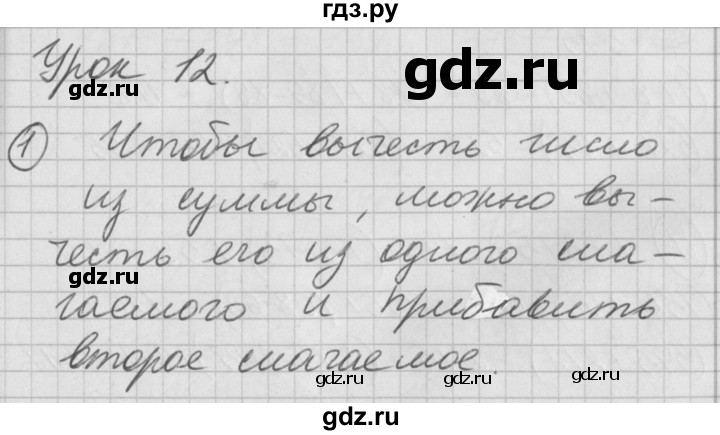 гдз.ру
Урок 12.
gdz.ru
gdz.ru
1 Чтобы вычесть число
из суммы, можно вы-
честь его из одного сла-
gdz.ru
гаемого и прибавить
второе слагаемое.
gdz.ru
gdz.ru
gdz.ru